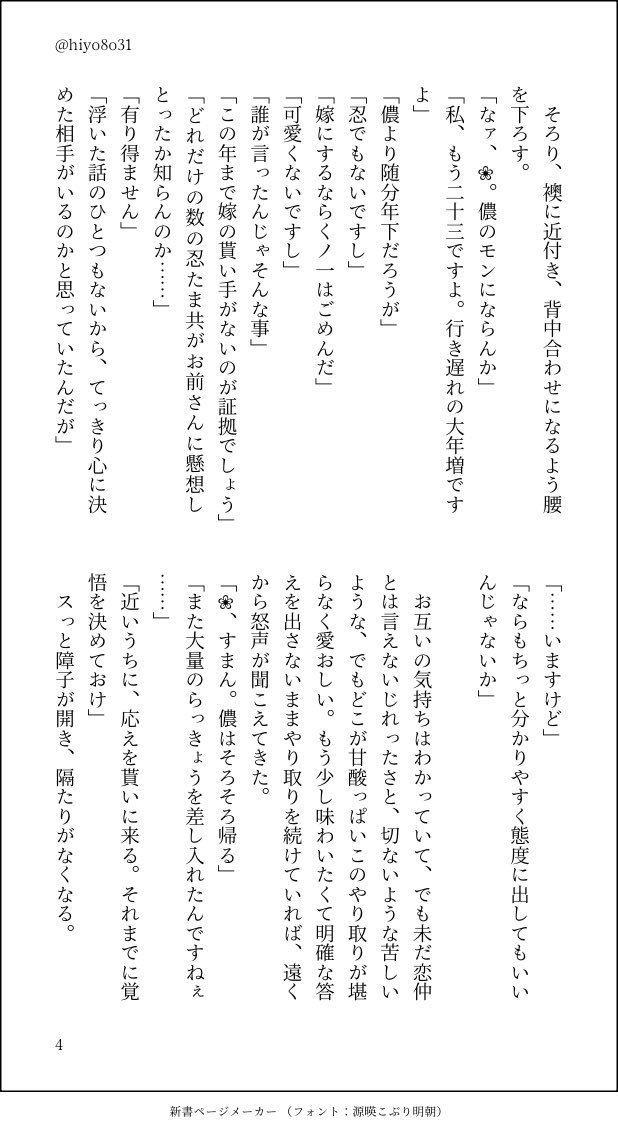 @hiyo8o31
そろり、襖に近付き、背中合わせになるよう腰
を下ろす。
「なァ、❀。儂のモンにならんか」
「私、もう二十三ですよ。行き遅れの大年増です
よ」
「儂より随分年下だろうが」
「忍でもないですし」
「嫁にするならくノ一はごめんだ」
「可愛くないですし」
「誰が言ったんじゃそんな事」
「この年まで嫁の貰い手がないのが証拠でしょう」
「どれだけの数の忍たま共がお前さんに懸想し
とったか知らんのか……」
「有り得ません」
「浮いた話のひとつもないから、てっきり心に決
めた相手がいるのかと思っていたんだが」
「……いますけど」
「ならもちっと分かりやすく態度に出してもいい
んじゃないか」
お互いの気持ちはわかっていて、でも未だ恋仲
とは言えないじれったさと、切ないような苦しい
ような、でもどこが甘酸っぱいこのやり取りが堪
らなく愛おしい。もう少し味わいたくて明確な答
えを出さないままやり取りを続けていれば、遠く
から怒声が聞こえてきた。
「❀、すまん。儂はそろそろ帰る」
「また大量のらっきょうを差し入れたんですねぇ
……」
「近いうちに、応えを貰いに来る。それまでに覚
悟を決めておけ」
スっと障子が開き、隔たりがなくなる。
4
新書ページメーカー（フォント：源暎こぶり明朝）